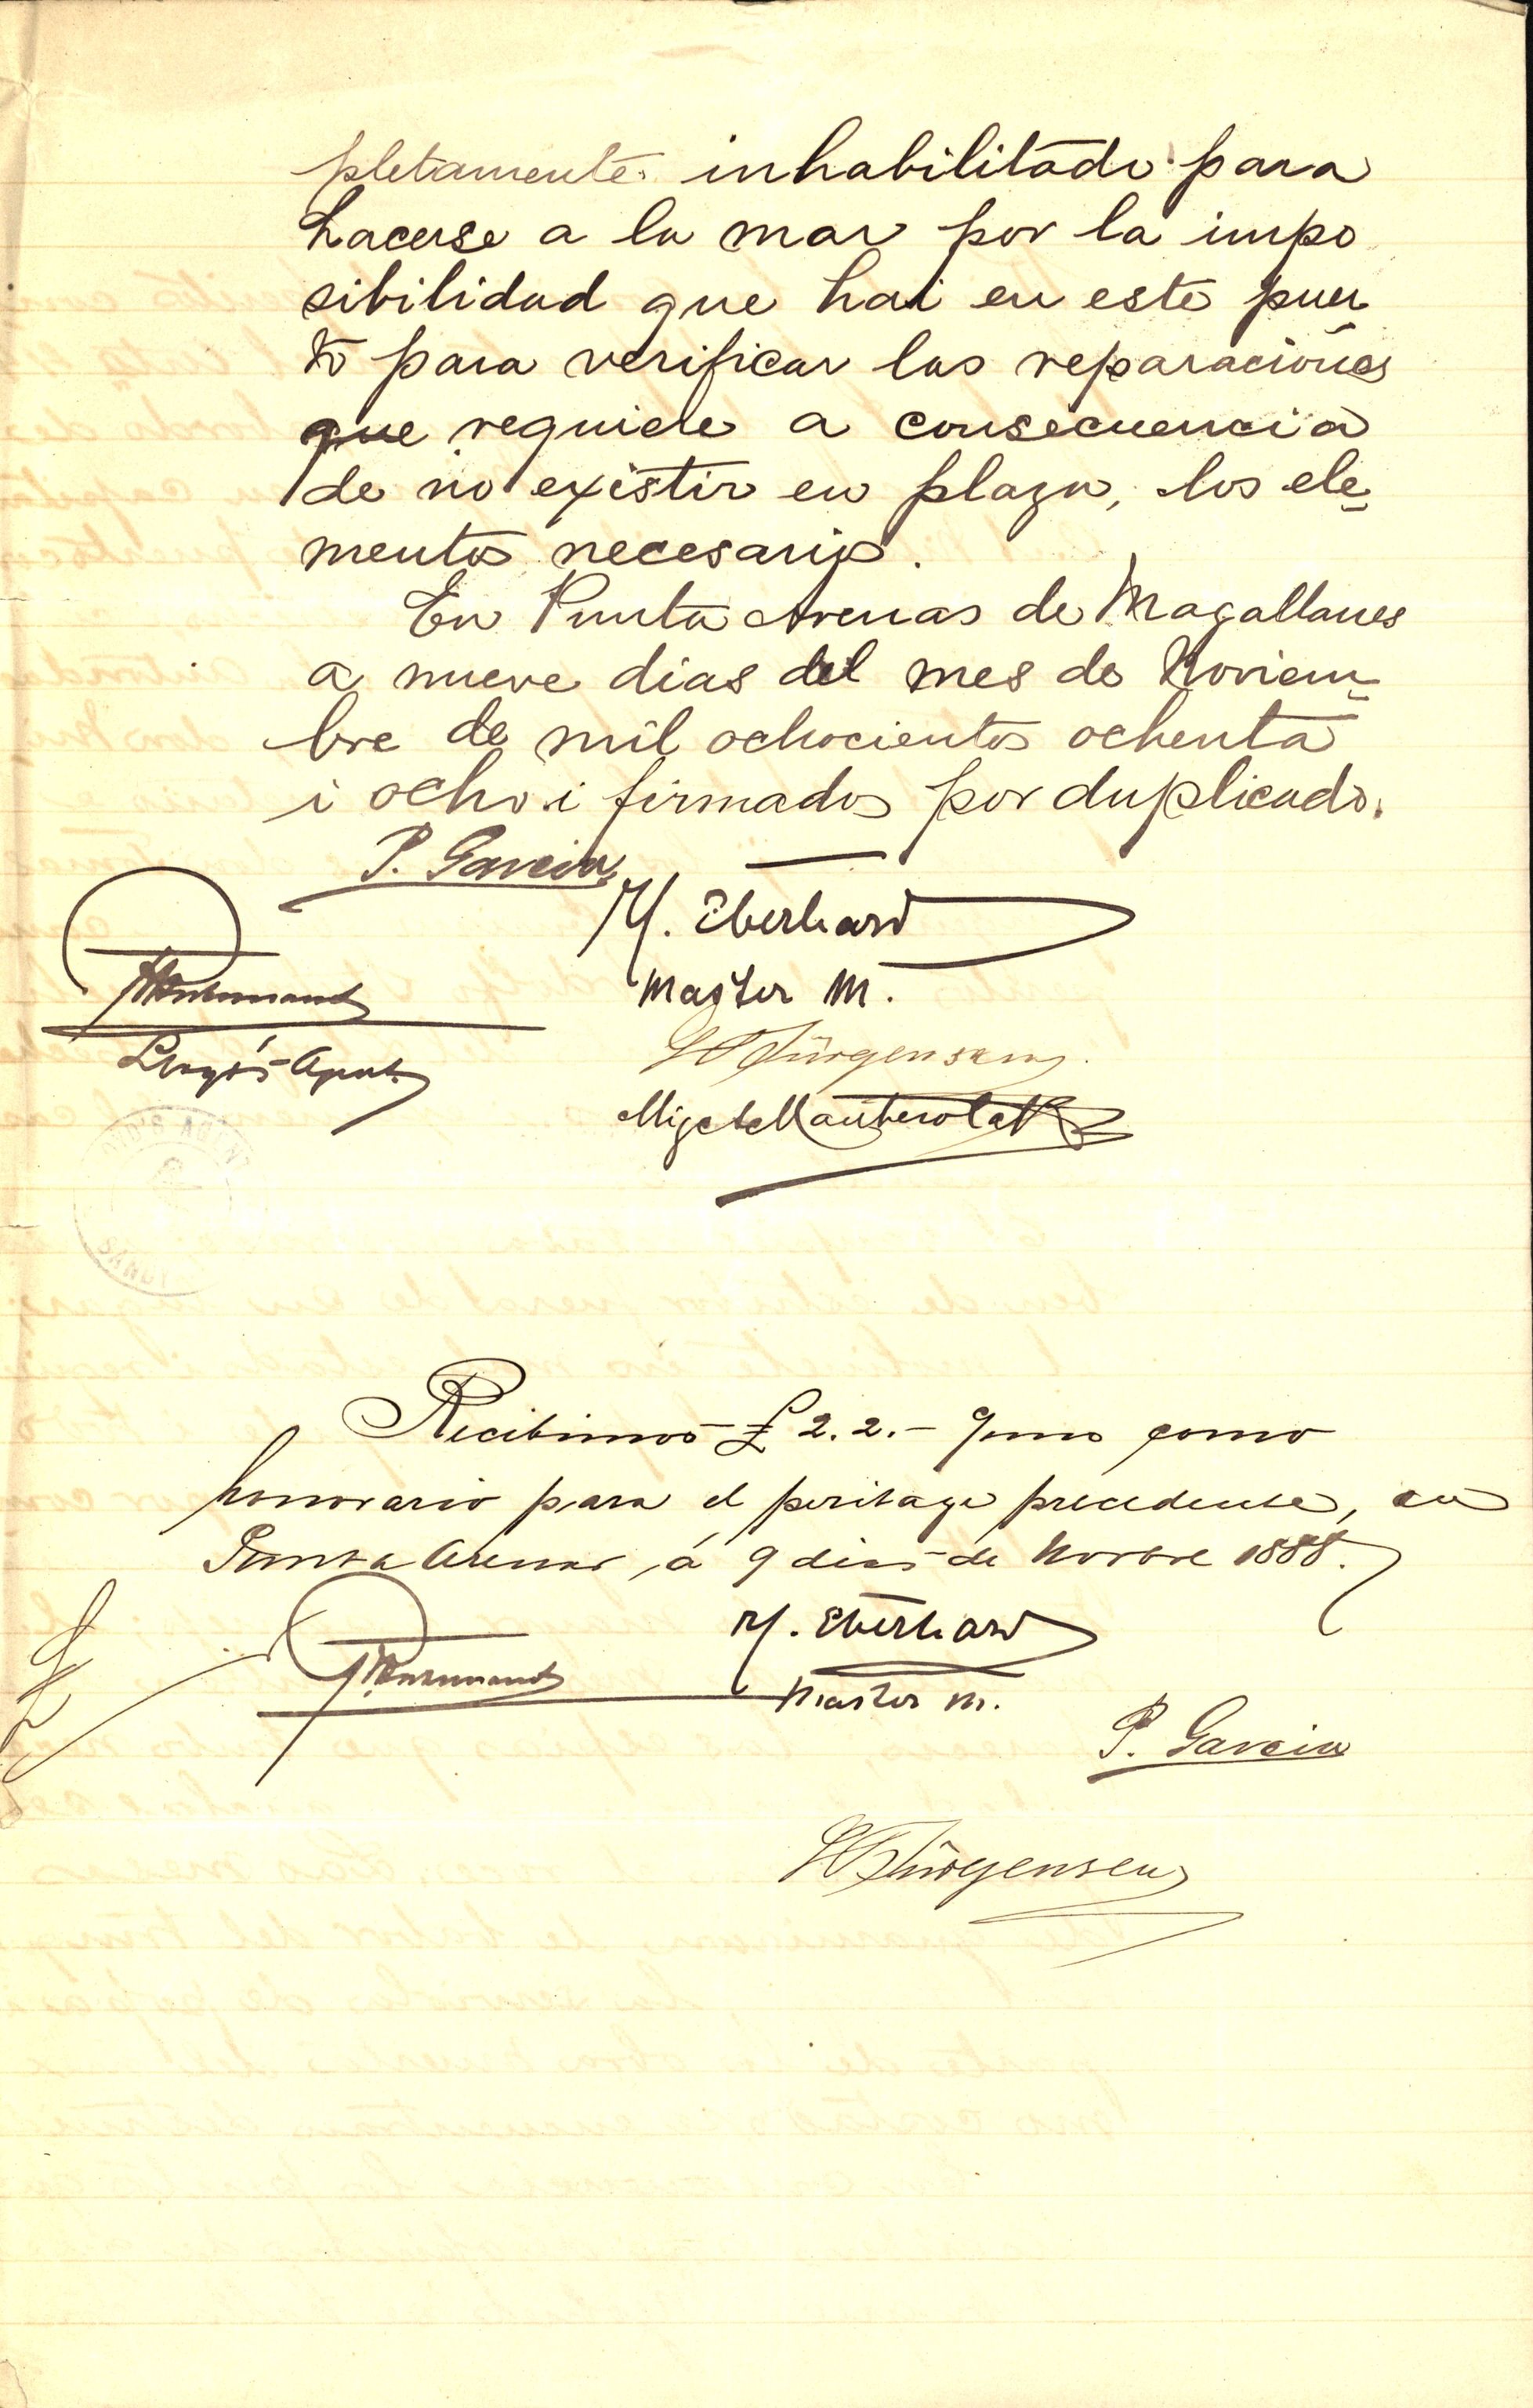 pletamente inhabilitado para
hacerse a la mar por la impo
sibilidad que hai en este puer
to para verificar las reparaciones
que requiere a consecuencia
de no existir en plaza, los ele-
mentos necesarios.
En Punta Arenas de Magallanes
a nueve dias del mes de Noviem-
bre de mil ochocientos ochenta
i ocho i firmados por duplicado.
P. Garcia
H. Eberhard
Master M.
Lloyd's Agent.
H Jürgensen
Recibimos £ 2.2.- como
honorario para el peritage precedente, en
Punta Arenas, á 9 dias de Novbre 1888.
H. Eberhard
Master M.
P. Garcia
H Jürgensen